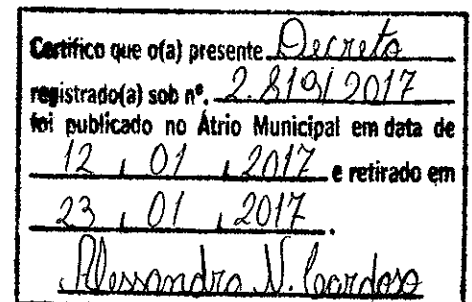 Certifico que o(a) presente Decreto
registrado(a) sob nº. 2.819/2017
foi publicado no Átrio Municipal em data de
12 / 01 / 2017 e retirado em
23 / 01 / 2017.
Alessandra N. Cardoso